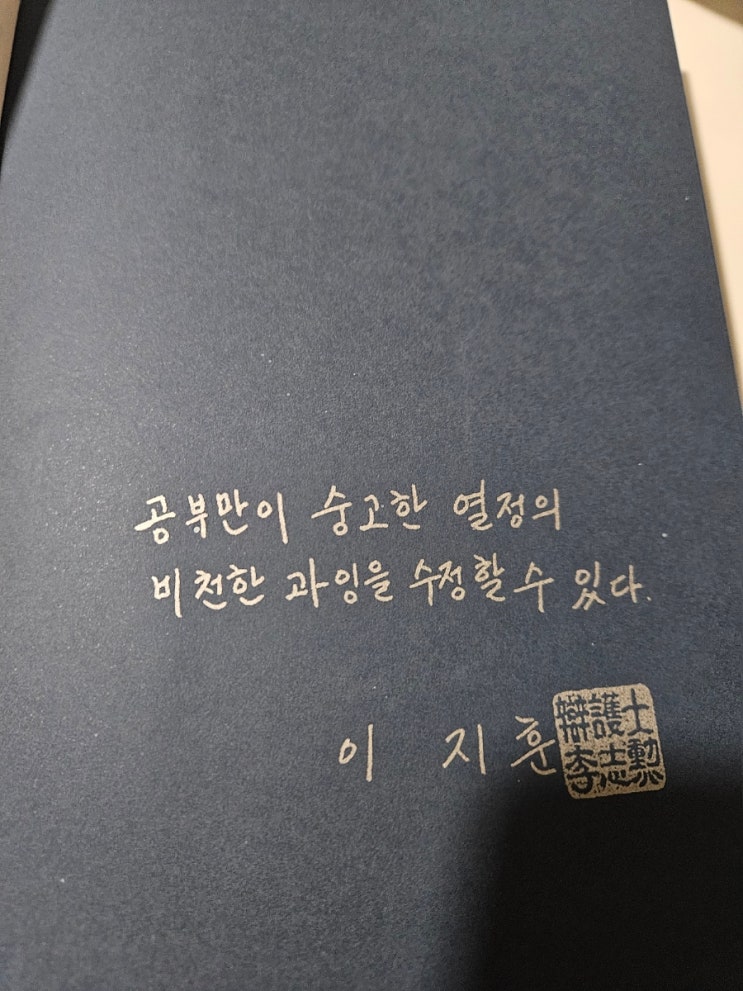 공부만이 숭고한 열정의
비천한 과잉을 수정할 수 있다.
이 지훈
辯護士
李志勳